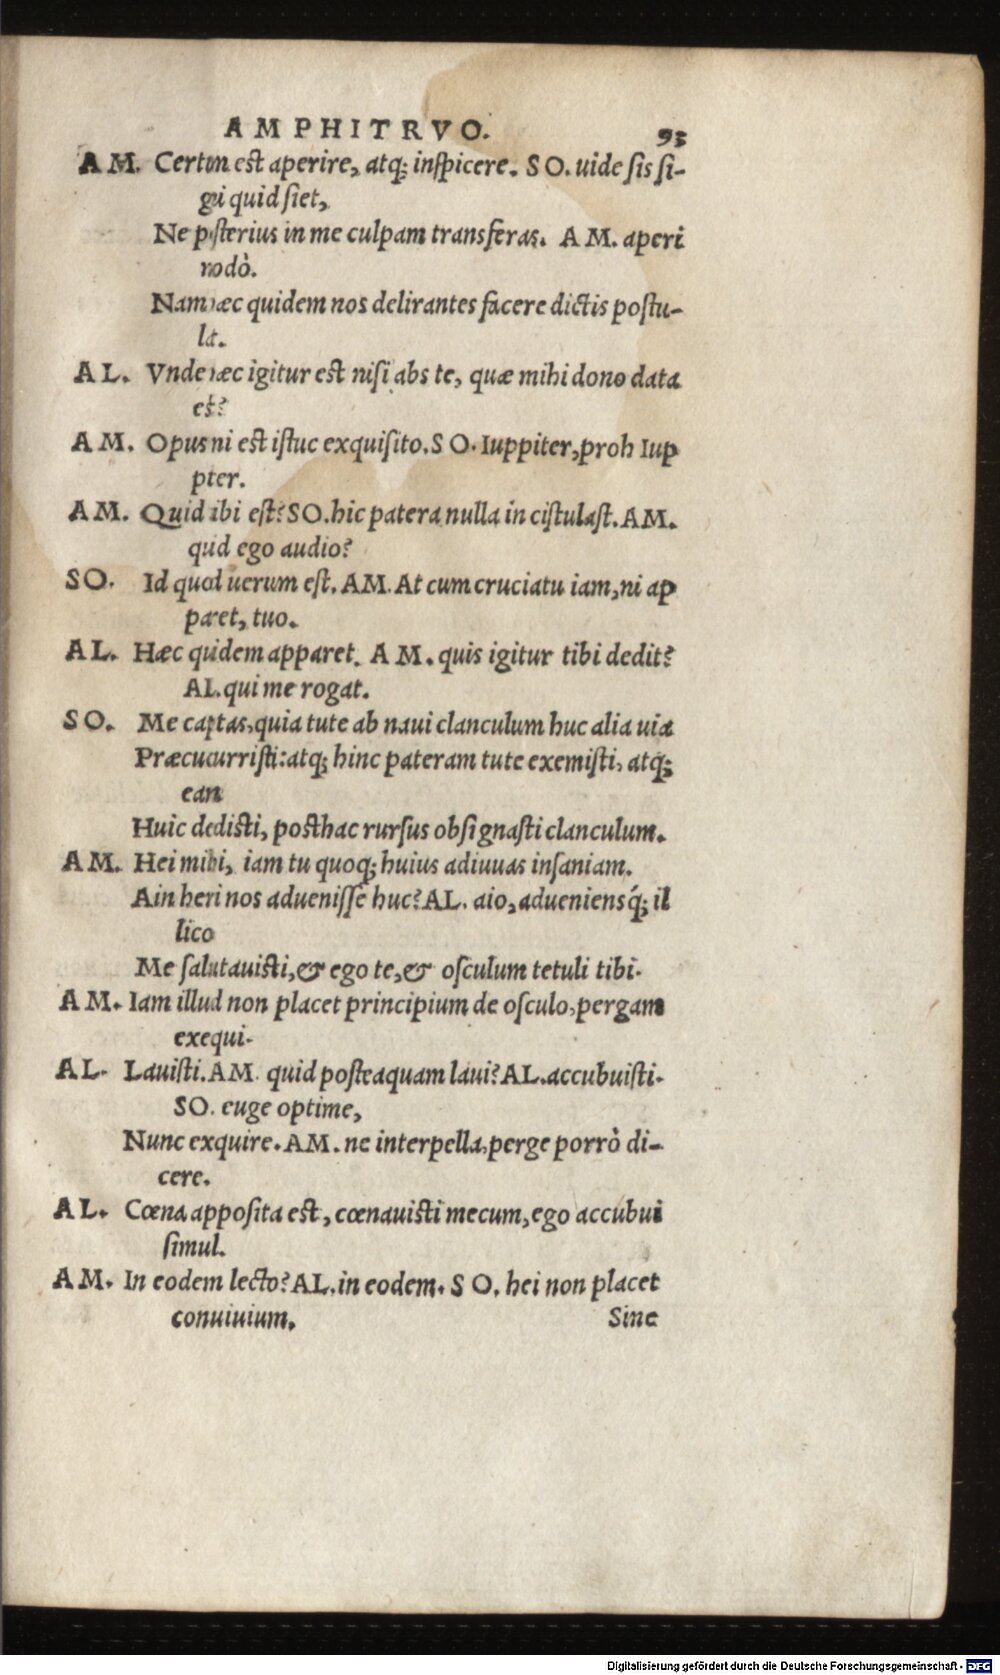 AMPHITRVO. 93
AM. Certum est aperire, atq; inspicere. SO. uide sis si-
gni quid siet,
Ne posterius in me culpam transferas. AM. aperi
modò.
Nam hæc quidem nos delirantes facere dictis postu-
lat.
AL. Vnde hæc igitur est nisi abs te, quæ mihi dono data
est?
AM. Opus mi est istuc exquisito. SO. Iuppiter, proh Iup
piter.
AM. Quid tibi est? SO. hic patera nulla in cistulast. AM.
quid ego audio?
SO. Id quod uerum est. AM. At cum cruciatu iam, ni ap
paret, tuo.
AL. Hæc quidem apparet. AM. quis igitur tibi dedit?
AL. qui me rogat.
SO. Me captas, quia tute ab naui clanculum huc alia uia
Præcucurristi: atq; hinc pateram tute exemisti, atq;
eam
Huic dedisti, posthac rursus obsignasti clanculum.
AM. Hei mihi, iam tu quoq; huius adiuuas insaniam.
Ain heri nos aduenisse huc? AL. aio, adueniensq́; il
lico
Me salutauisti, & ego te, & osculum tetuli tibi.
AM. Iam illud non placet principium de osculo, pergam
exequi.
AL. Lauisti. AM. quid posteaquam laui? AL. accubuisti.
SO. euge optime,
Nunc exquire. AM. ne interpella, perge porrò di-
cere.
AL. Cœna apposita est, cœnauisti mecum, ego accubui
simul.
AM. In eodem lecto? AL. in eodem. SO. hei non placet
conuiuium. Sine
Digitalisierung gefördert durch die Deutsche Forschungsgemeinschaft - DFG